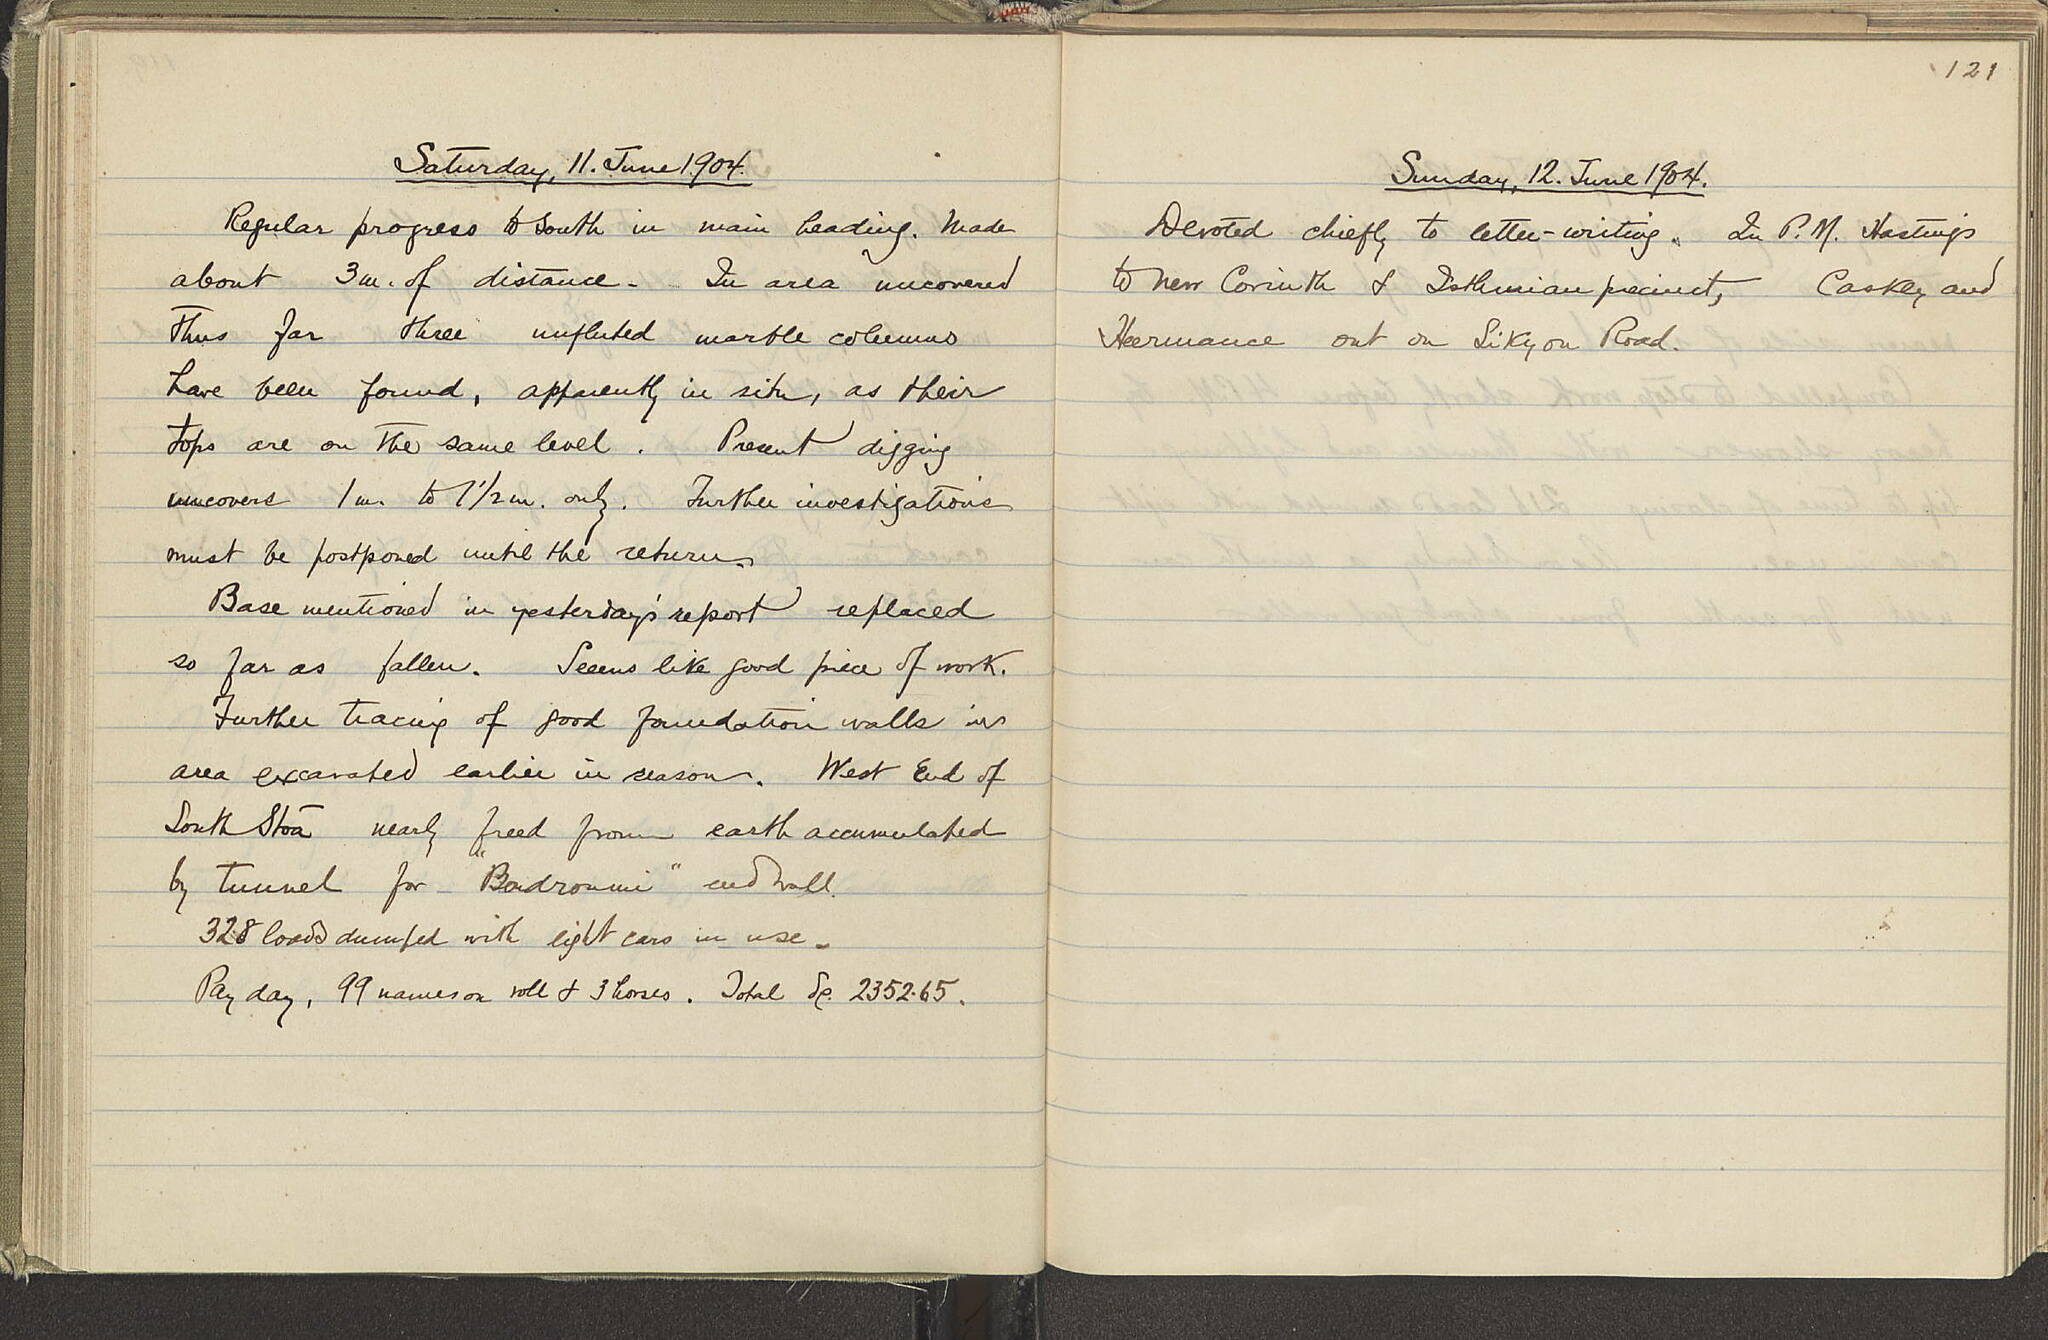 Saturday, 11. June 1904.
Regular progress to south in main heading. Made
about 3m. of distance. In area uncovered
thus far three unfluted marble columns
have been found, apparently in situ, as their
tops are on the same level. Present digging
uncovers 1m. to 1 1/2m. only. Further investigations
must be postponed until the return.
Base mentioned in yesterday's report replaced
so far as fallen. Seems like good piece of work.
Further tracing of good foundation walls in
area excavated earlier in season. West End of
South Stoa nearly freed from earth accumulated
by tunnel for "Boudroumi" end wall.
328 loads dumped with eight cars in use.
Pay day, 99 names on roll & 3 horses. Total δρ. 2352.65.
121
Sunday, 12. June 1904.
Devoted chiefly to letter-writing. In P.M. Hastings
to New Corinth & Isthmian precinct, Caskey and
Heermance out on Sikyon Road.